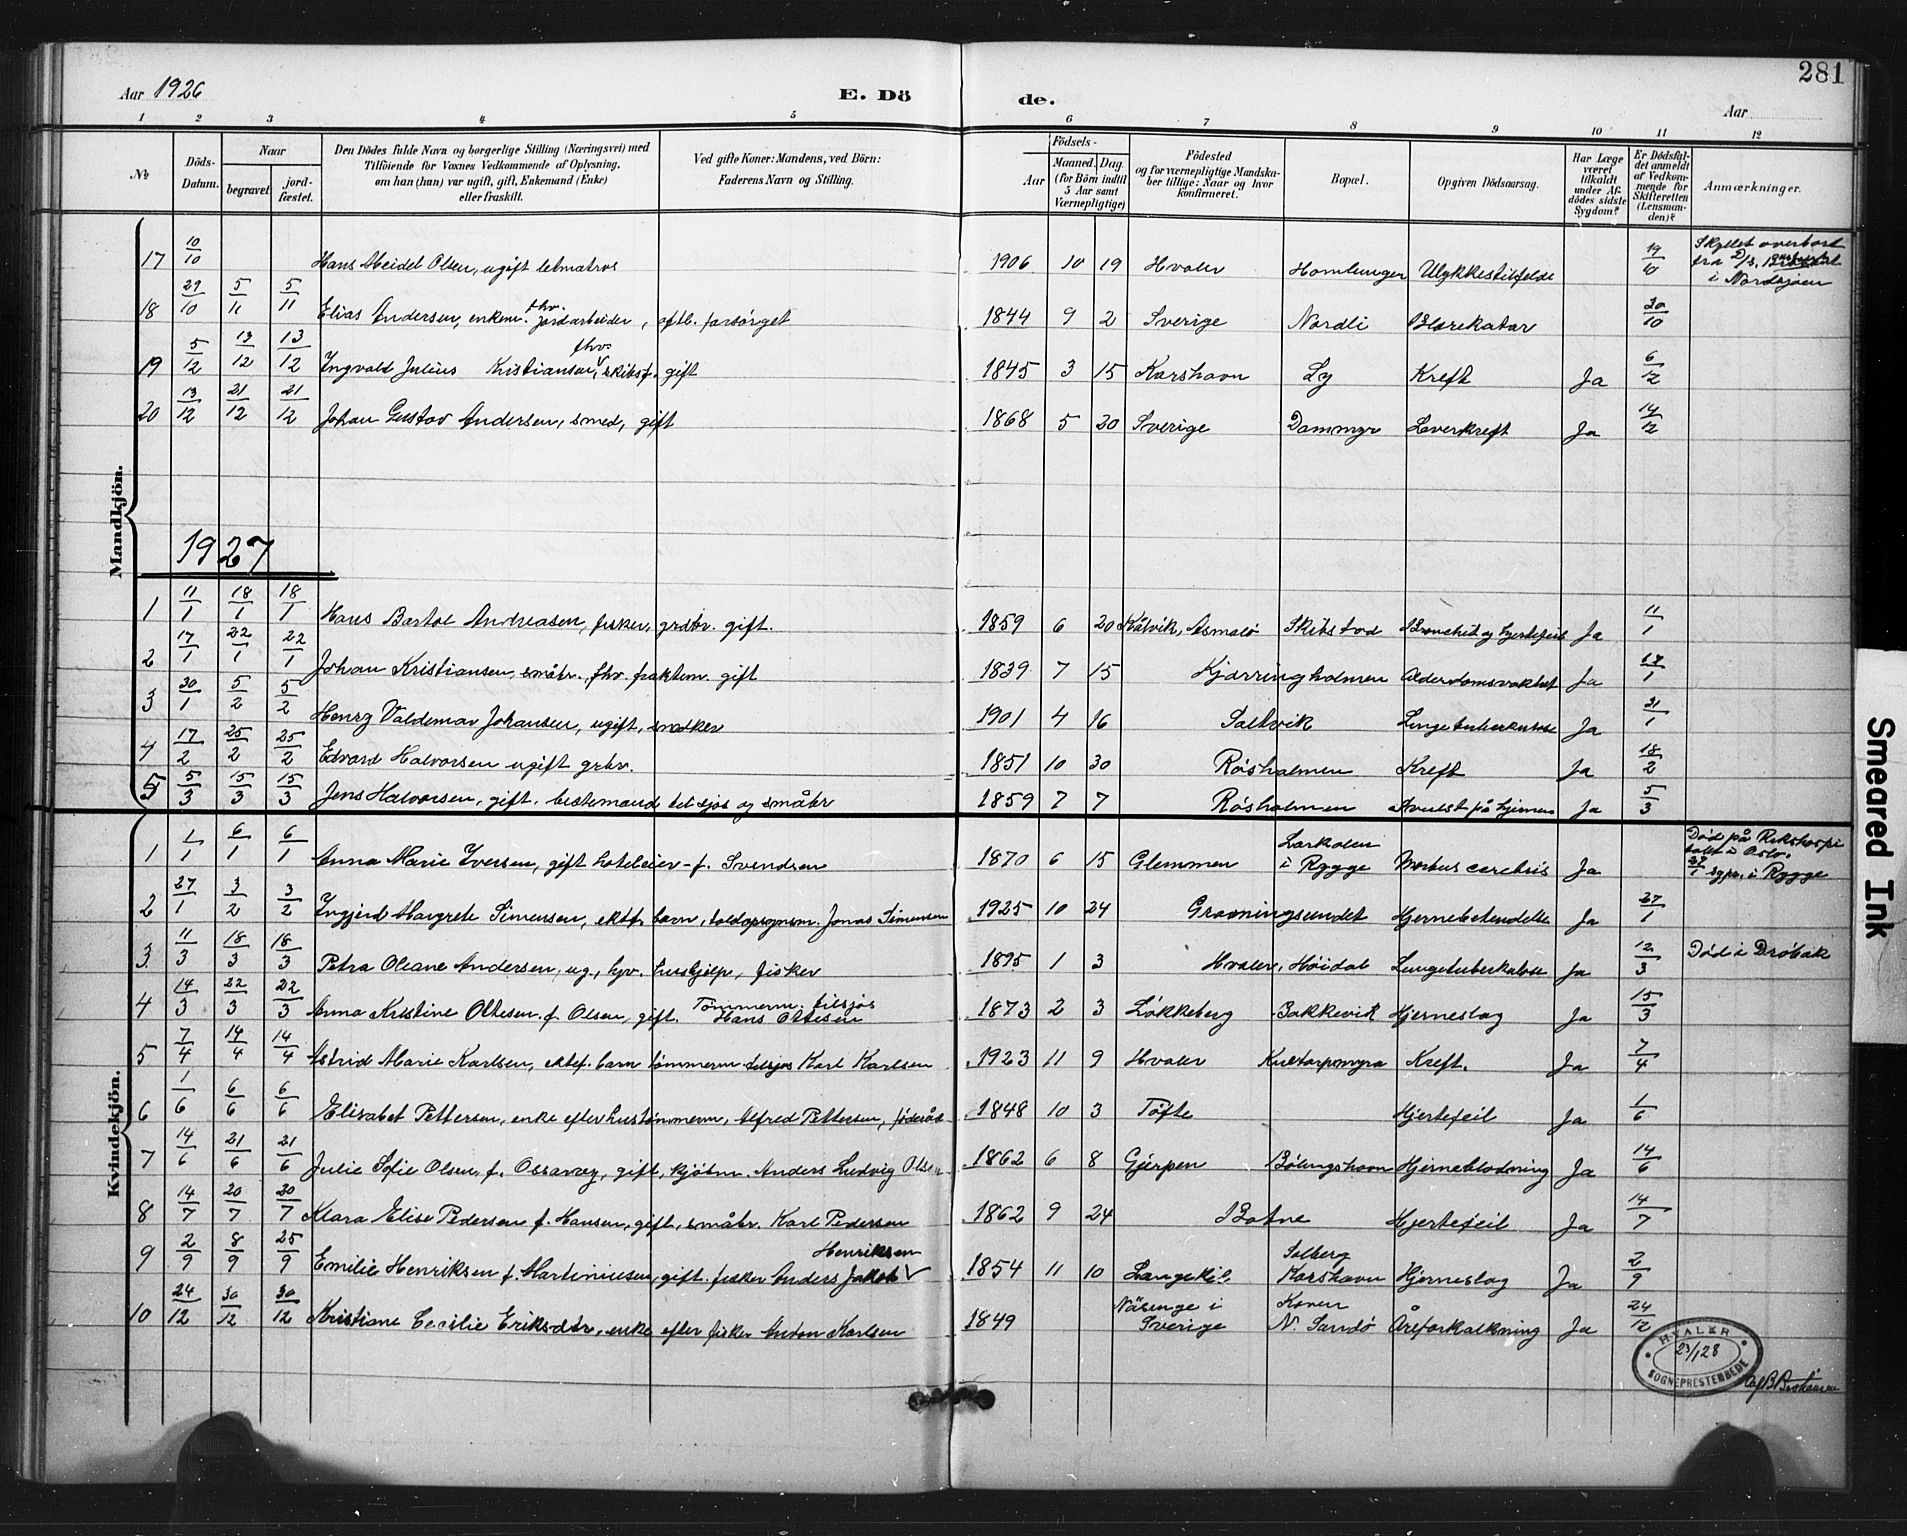 281
Aar 1926
E. Dö de.
Aar
1 2 3 4 5 6 7 8 9 10 11 12
№ Döds-Datum. Naar begravet jord-fæstet. Den Dödes fulde Navn og borgerlige Stilling (Næringsvei) med Tilföiende for Voxnes Vedkommende af Oplysning, om han (hun) var ugift, gift, Enkemand (Enke) eller fraskilt. Ved gifte Koner: Mandens, ved Börn: Faderens Navn og Stilling. Födsels- Aar Maaned. Dag. (for Börn indtil 5 Aar samt Værnepligtige) Födested og for værnepligtige Mandskaber tillige: Naar og hvor konfirmeret. Bopæl. Opgiven Dödsaarsag. Har Læge været tilkaldt under Afdödes sidste Sygdom? Er Dödsfaldet anmeldt af Vedkommende for Skifteretten (Lensmanden)? Anmærkninger.
Mandkjön.
17 10/10 Hans Meidel Olsen, ugift letmatros 1906 10 19 Hvaler Homlungen Ulykkestilfelde 19/10 Skyllet overbort fra D/S i Nordsjøen
18 29/10 5/11 5/11 Elias Andersen, enkem. fhv. jordarbeider, offtl. forsørget 1844 9 2 Sverige Nordli Blærekatar 30/10
19 5/12 13/12 13/12 Ingvald Julius Kristiansen, fhv. skibsf. gift 1845 3 15 Korshavn Ly Kreft Ja 6/12
20 13/12 21/12 21/12 Johan Gustav Andersen, smed, gift 1868 5 20 Sverige Dammyr Leverkreft Ja 14/12
1927
1 11/1 18/1 18/1 Hans Bartol Andreasen, fisker, grdbr. gift. 1859 6 20 Kålvik, Asmalø Skibstad Bronchit og hjertefeil Ja 11/1
2 17/1 22/1 22/1 Johan Kristiansen, småbr., fhv. fraktem. gift 1839 7 15 Kjærringholmen Alderdomsvakhet Ja 17/1
3 30/1 5/2 5/2 Henry Valdemar Johansen, ugift, snedker 1901 4 16 Saltvik Lungetuberkulose Ja 31/1
4 17/2 25/2 25/2 Edvard Halvorsen ugift grbr. 1851 10 30 Røsholmen Kreft Ja 18/2
5 5/3 15/3 15/3 Jens Halvorsen, gift, bestemand tilsjøs og småbr 1859 7 7 Røsholmen Avulst på hjernen Ja 5/3
Kvindekjön.
1 1/1 6/1 6/1 Anna Marie Iversen, gift hoteleier - f. Svendsen 1870 6 15 Glemmen Larkolen i Rygge Morbus cerebris Ja Død på Rikshospitalet i Oslo. i Rygge
2 27/1 3/2 3/2 Ingjerd Margrete Simensen, ektf. barn, toldopsynsm. Jonas Simensen 1925 10 24 Gravningsundet Hjernebetendelse Ja 27/1
3. 11/3 18/3 18/3 Petra Oleane Andersen, ug., hjv. hushjelp, fisker 1895 1 3 Hvaler, Høidal Lungetuberkulose Ja 12/3 Død i Drøbak
4 14/3 22/3 22/3 Anna Kristine Ottesen f. Olsen, gift. Tømmerm. tilsjøs Hans Ottesen 1873 2 3 Løkkeberg Bakkevik Hjerneslag Ja 15/3
5 7/4 14/4 14/4 Astrid Marie Karlsen, ektef. barn tømmerm tilsjøs Karl Karlsen 1923 11 9 Hvaler Kreft. Ja 7/4
6 1/6 6/6 6/6 Elisabet Pettersen, enke efter hustømmerm, Alfred Pettersen, føderåd 1848 10 3 Tofte Hjertefeil Ja 1/6
7 14/6 21/6 21/6 Julie Sofie Olsen, f. gift, kjøbm. Anders Ludvig Olsen 1862 6 8 Gjerpen Bølingshavn Hjerneblødning Ja 14/6
8 14/7 20/7 20/7 Klara Elise Pedersen f. Hansen, gift, småbr. Karl Pedersen 1862 9 24 Botne Hjertefeil Ja 14/7
9 2/9 8/9 25/9 Emilie Henriksen f. Martiniussen, gift. fisker Anders Jakob Henriksen 1854 11 10 Langekil Solberg Korshavn Hjerneslag Ja 2/9
10 24/12 30/12 30/12 Kristiane Cecilie Eriksdtr, enke efter fisker Anton Karlsen 1849 Näsinge i Sverige N. Sandø Åreforkalkning Ja 24/12
HVALER SOGNEPRESTEMBEDE
23/1 28
Smeared Ink